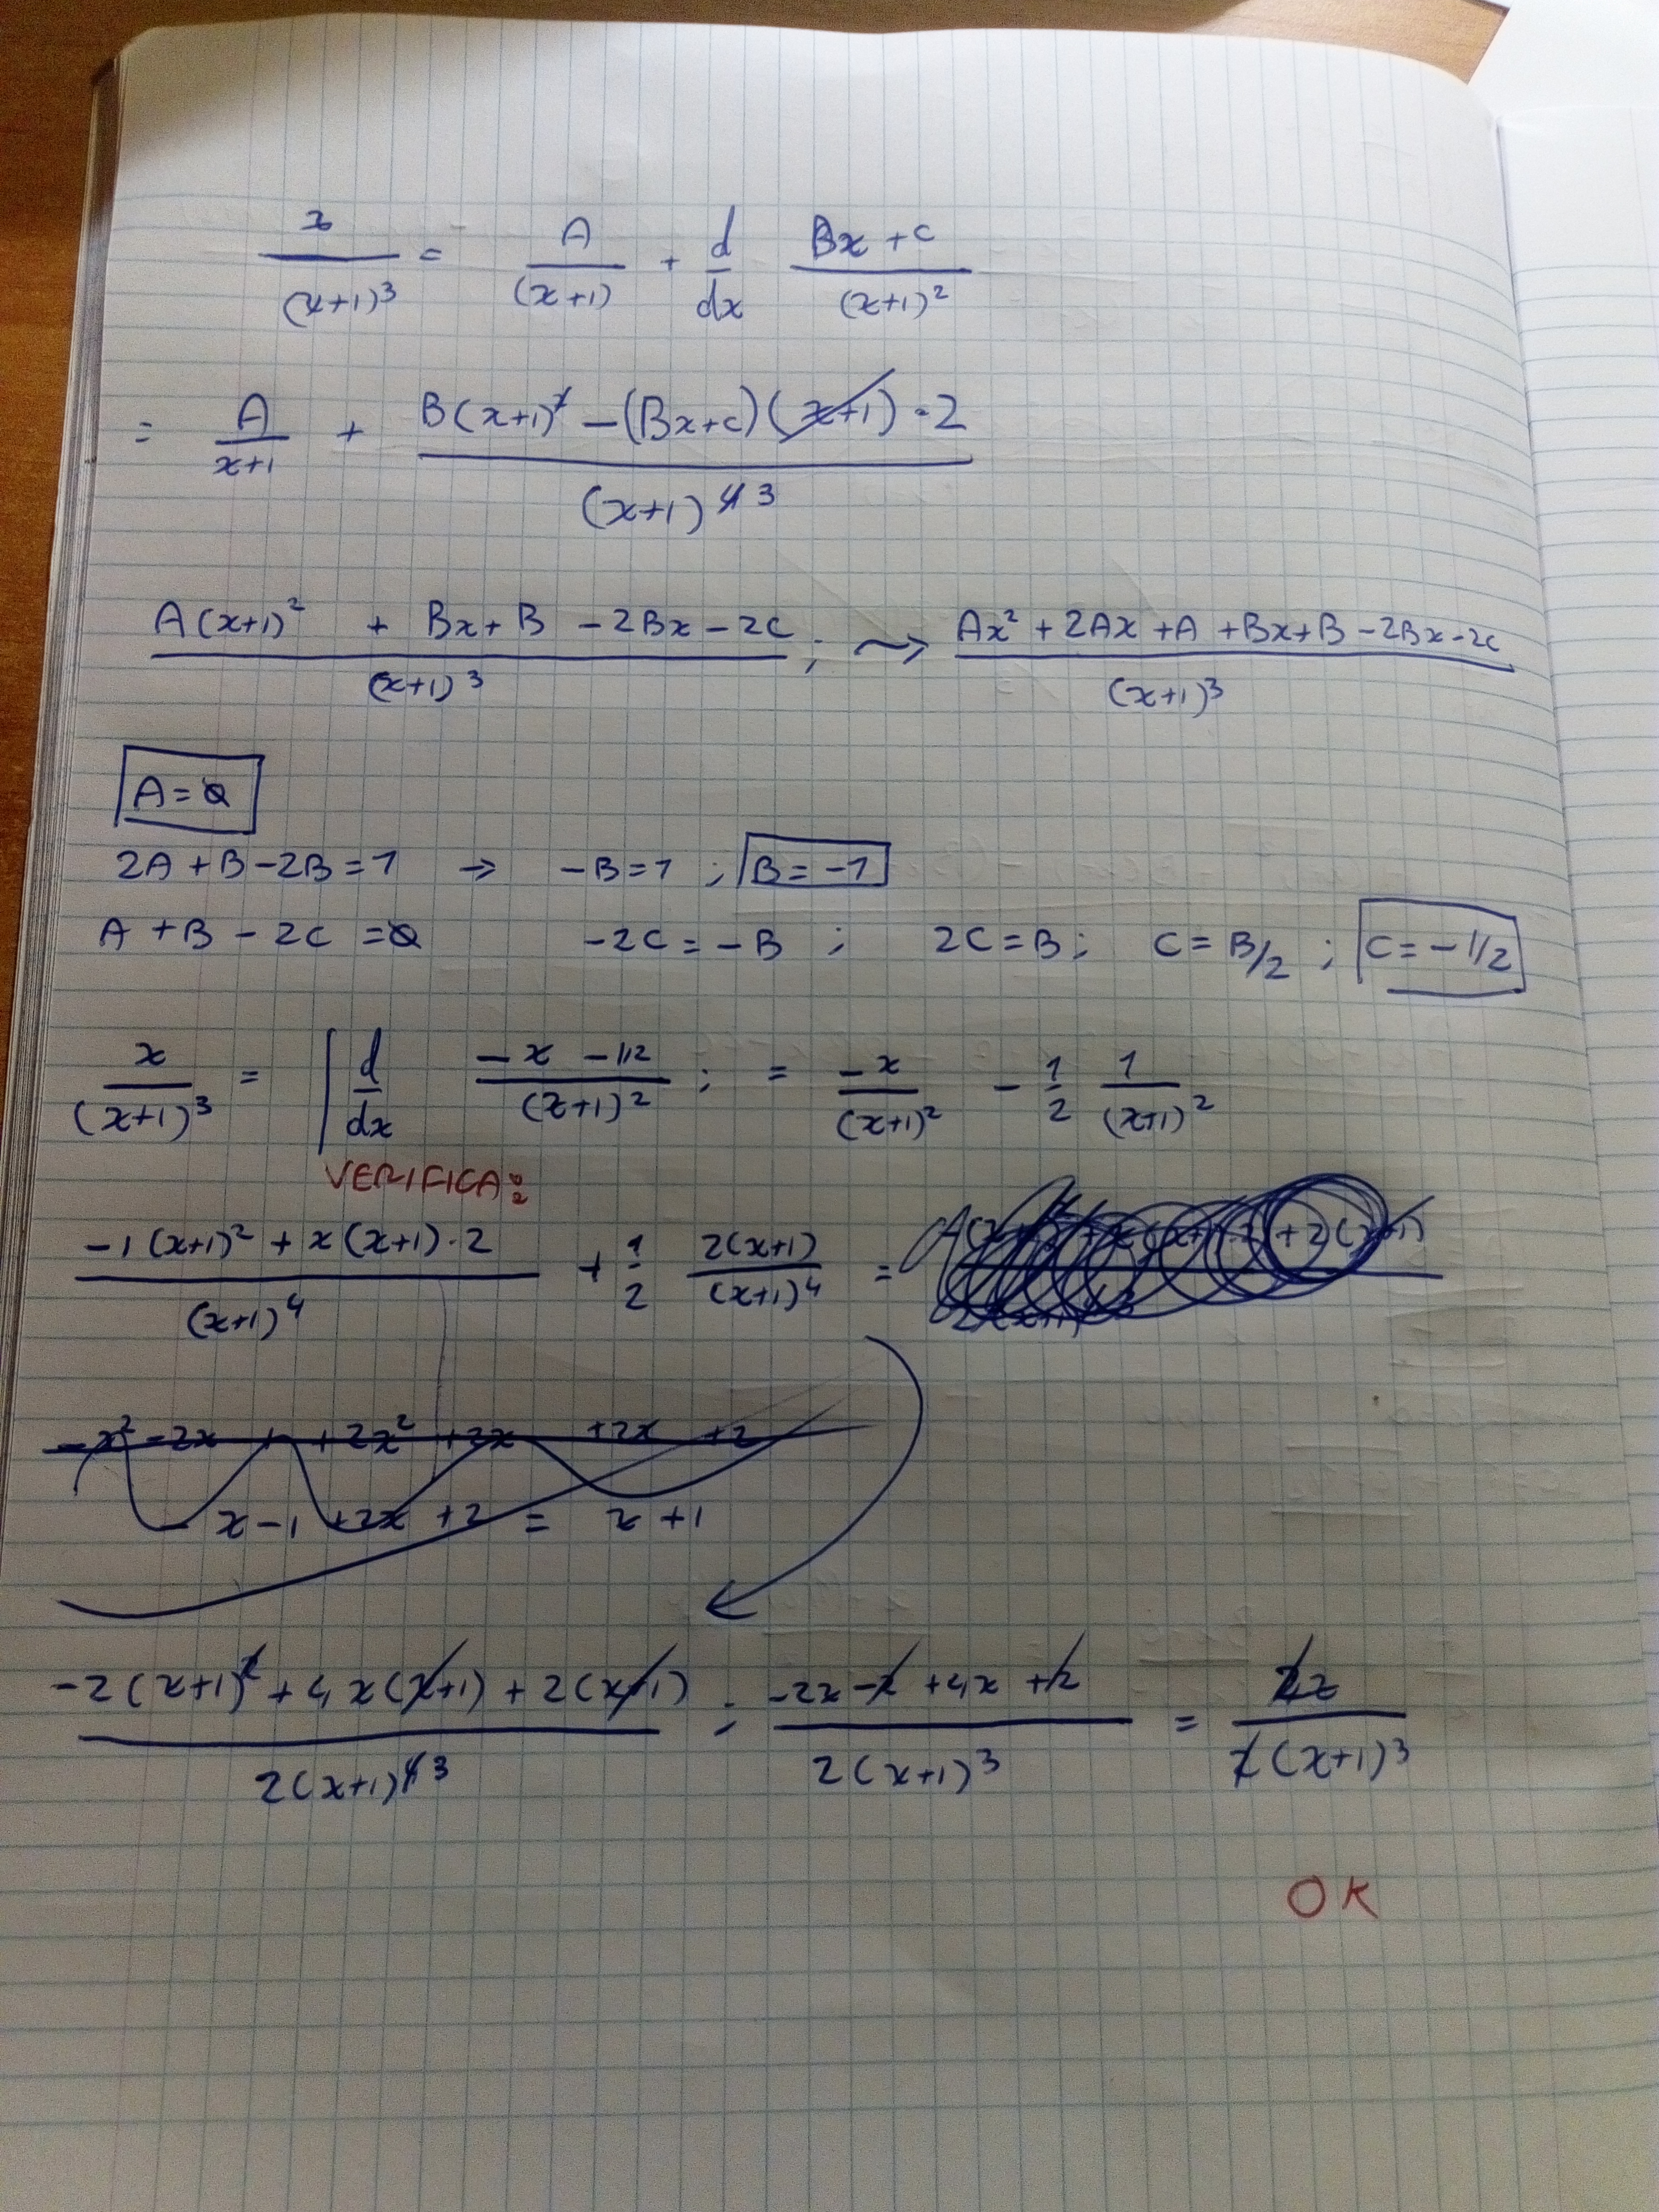 x/(x+1)³ = A/(x+1) + d/dx (Bx+c)/(x+1)²
= A/(x+1) + (B(x+1)² - (Bx+c)(x+1)·2)/(x+1)⁴ ³
(A(x+1)² + Bx+B -2Bx-2c)/(x+1)³ ; ⤳ (Ax² + 2Ax + A + Bx+B -2Bx-2c)/(x+1)³
A=0
2A+B-2B=1 → -B=1 ; B=-1
A+B-2C=0 -2C=-B ; 2C=B ; C=B/2 ; C=-1/2
x/(x+1)³ = ∫ d/dx (-x -1/2)/(x+1)² ; = -x/(x+1)² - 1/2 1/(x+1)²
VERIFICA:
(-1(x+1)² + x(x+1)·2)/(x+1)⁴ + 1/2 2(x+1)/(x+1)⁴ =
-x² -2x + 2x² + 2x + 2x + 2
-x-1+2x+2 = x+1
(-2(x+1)² + 4x(x+1) + 2(x+1))/2(x+1)⁴ ³ ; (-2x-2+4x+2)/2(x+1)³ = 2x/2(x+1)³
OK